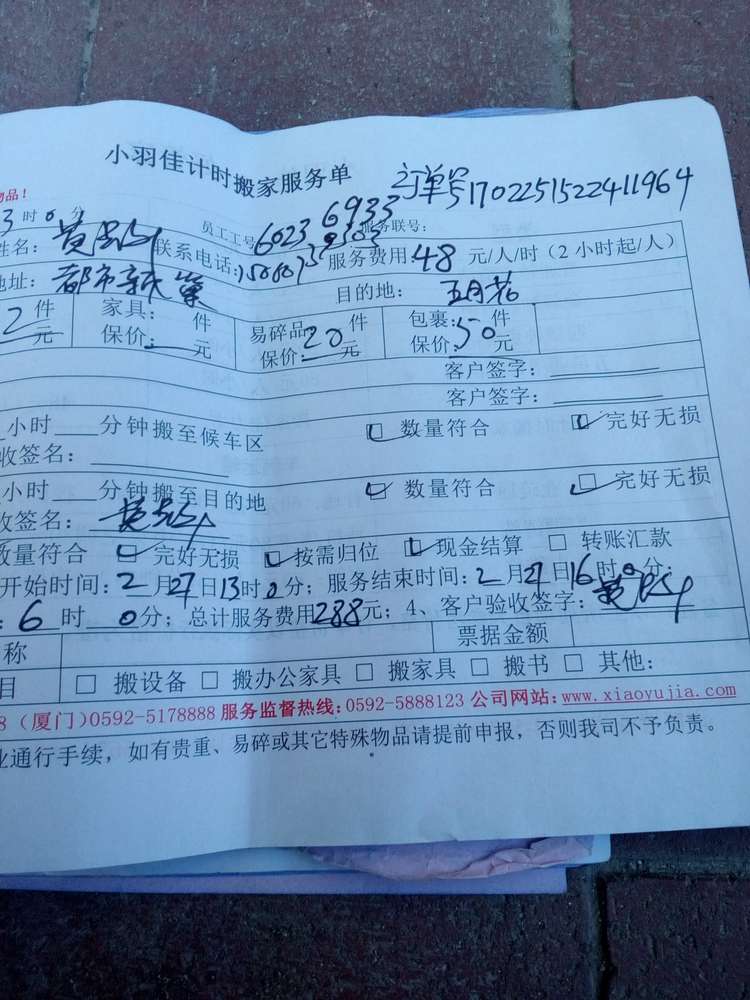 小羽佳计时搬家服务单
订单号1702251522411964
物品！
3时0分 员工工号 6023 6933 服务联号：
姓名： 联系电话： 服务费用48元/人/时（2小时起/人）
地址：都市新巢 目的地：五月花
2件 家具： 件 易碎品 件 包裹： 件
元 保价： 元 保价：20元 保价：50元
客户签字：
客户签字：
小时 分钟搬至候车区 数量符合 完好无损
收签名：
小时 分钟搬至目的地 数量符合 完好无损
收签名：
数量符合 完好无损 按需归位 现金结算 转账汇款
开始时间：2月27日13时0分；服务结束时间：2月27日16时0分；
：6时0分；总计服务费用288元；4、客户验收签字：
称 票据金额
目 搬设备 搬办公家具 搬家具 搬书 其他：
8（厦门)0592-5178888 服务监督热线：0592-5888123 公司网站：www.xiaoyujia.com
业通行手续，如有贵重、易碎或其它特殊物品请提前申报，否则我司不予负责。